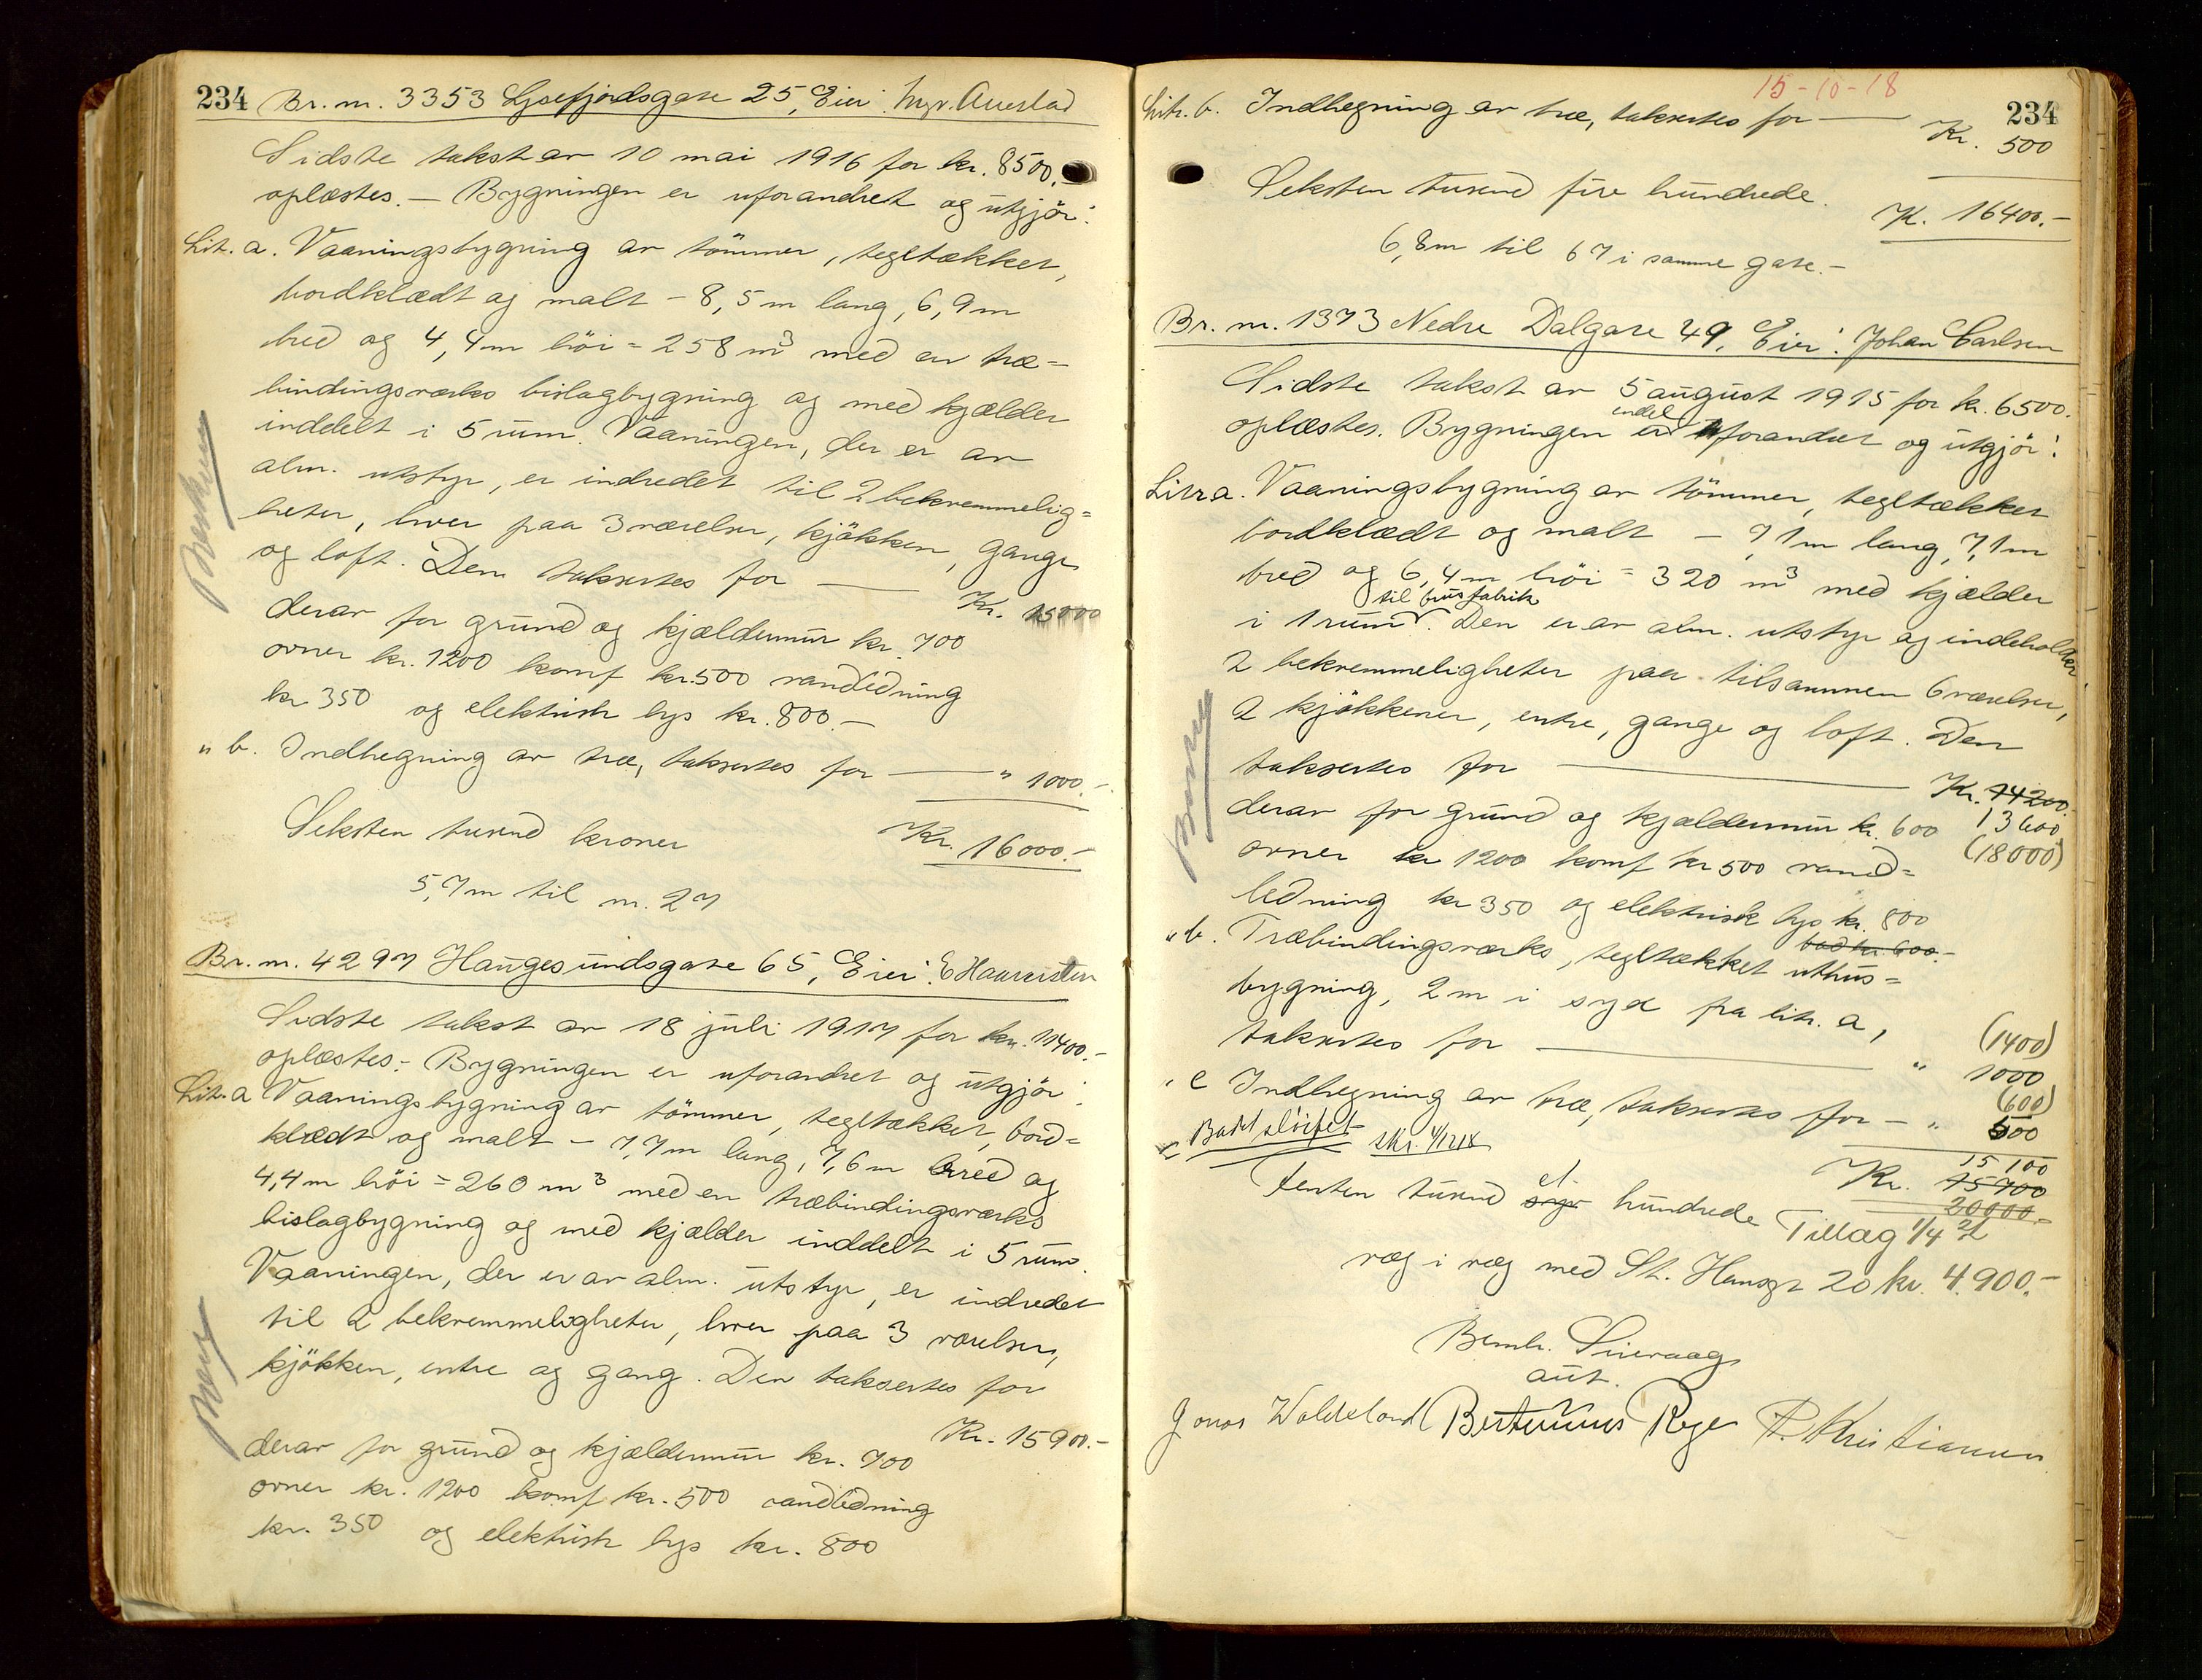 234 Br. nr. 3353 Lysefjordsgate 25, Eier: Auestad
Sidste takst av 10 mai 1916 for kr. 8500.-
oplæstes. - Bygningen er uforandret og utgjør:
Lit. a. Vaaningsbygning av tømmer, tegltækket,
bordklædt og malt - 8,5 m lang, 6,9 m
bred og 4,4 m høi = 258 m³ med en træ-
bindingsværks bislagbygning og med kjælder
inddelt i 5 rum. Vaaningen, der er av
alm. utstyr, er indredet til 2 bekvemmelig-
heter, hver paa 3 værelser, kjøkken, gange
og loft. Den taksertes for — Kr. 15000
derav for grund og kjældermur kr. 700
ovner kr. 1200 komf kr. 500 vandledning
kr 350 og elektrisk lys kr. 800.-
" b. Indhegning av træ, taksertes for — " 1000.-
Seksten tusend kroner Kr. 16000.-
5,7m til nr. 27
Br. nr. 4297 Haugesundsgate 65, Eier: E Haaversten
Sidste takst av 18 juli 1917 for kr. 11400.-
oplæstes: Bygningen er uforandret og utgjør:
Lit. a Vaaningsbygning av tømmer, tegltækket, bord-
klædt og malt - 7,7m lang, 7,6m bred og
4,4m høi = 260 m³ med en træbindingsværks
bislagbygning og med kjælder inddelt i 5 rum.
Vaaningen, der er av alm. utstyr, er indredet
til 2 bekvemmeligheter, hver paa 3 værelser,
kjøkken, entre og gang. Den taksertes for
Kr. 15900.-
derav for grund og kjældermur kr. 700
ovner kr. 1200 komf kr. 500 vandledning
kr. 350 og elektrisk lys kr. 800
15-10-18
234
Litr. b. Indhegning av træ, taksertes for — Kr. 500
Seksten tusend fire hundrede. Kr. 16400.-
6,8m til 67 i samme gate.-
Br. nr. 1373 Nedre Dalgate 49, Eier: Johan Carlsen
Sidste takst av 5 august 1915 for kr. 6500.
indel
oplæstes. Bygningen er forandret og utgjør:
Litr a. Vaaningsbygning av tømmer, tegltækket
bordklædt og malt - 7,1m lang, 7,1m
bred og 6,4m høi = 320 m³ med kjælder
til brusfabrik
i 1 rum. Den er av alm. utstyr og indeholder
2 bekvemmeligheter paa tilsammen 6 værelser,
2 kjøkkener, entre, gange og loft. Den
taksertes for — Kr. 14200
derav for grund og kjældermur kr. 600 13600
(18000)
ovner kr 1200 komf kr 500 vand-
ledning kr 350 og elektrisk lys kr. 800
bad kr. 600.-
" b. Træbindingsværks, tegltækket uthus-
bygning, 2 m i syd fra litr. a,
(1400)
taksertes for — " 1000
(600)
" c Indhegning av træ, taksertes for - " 500
Badet sløifet skr. 4/12 18
15100
Kr. 15700
20000.-
et
Femten tusend syv hundrede
Tillæg 1/4 21
væg i væg med St. Hansgt 20 kr. 4.900.-
Bernh. Sivereaag
aut.
Jonas Waldeland Bertinius Rege P. Kristiansen